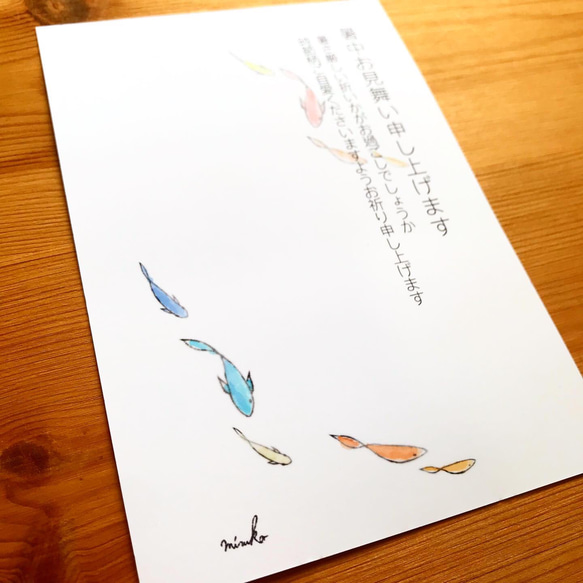 暑中お見舞い申し上げます
暑さ厳しい折いかがお過ごしでしょうか
時節柄ご自愛くださいますようお祈り申し上げます
mizuko